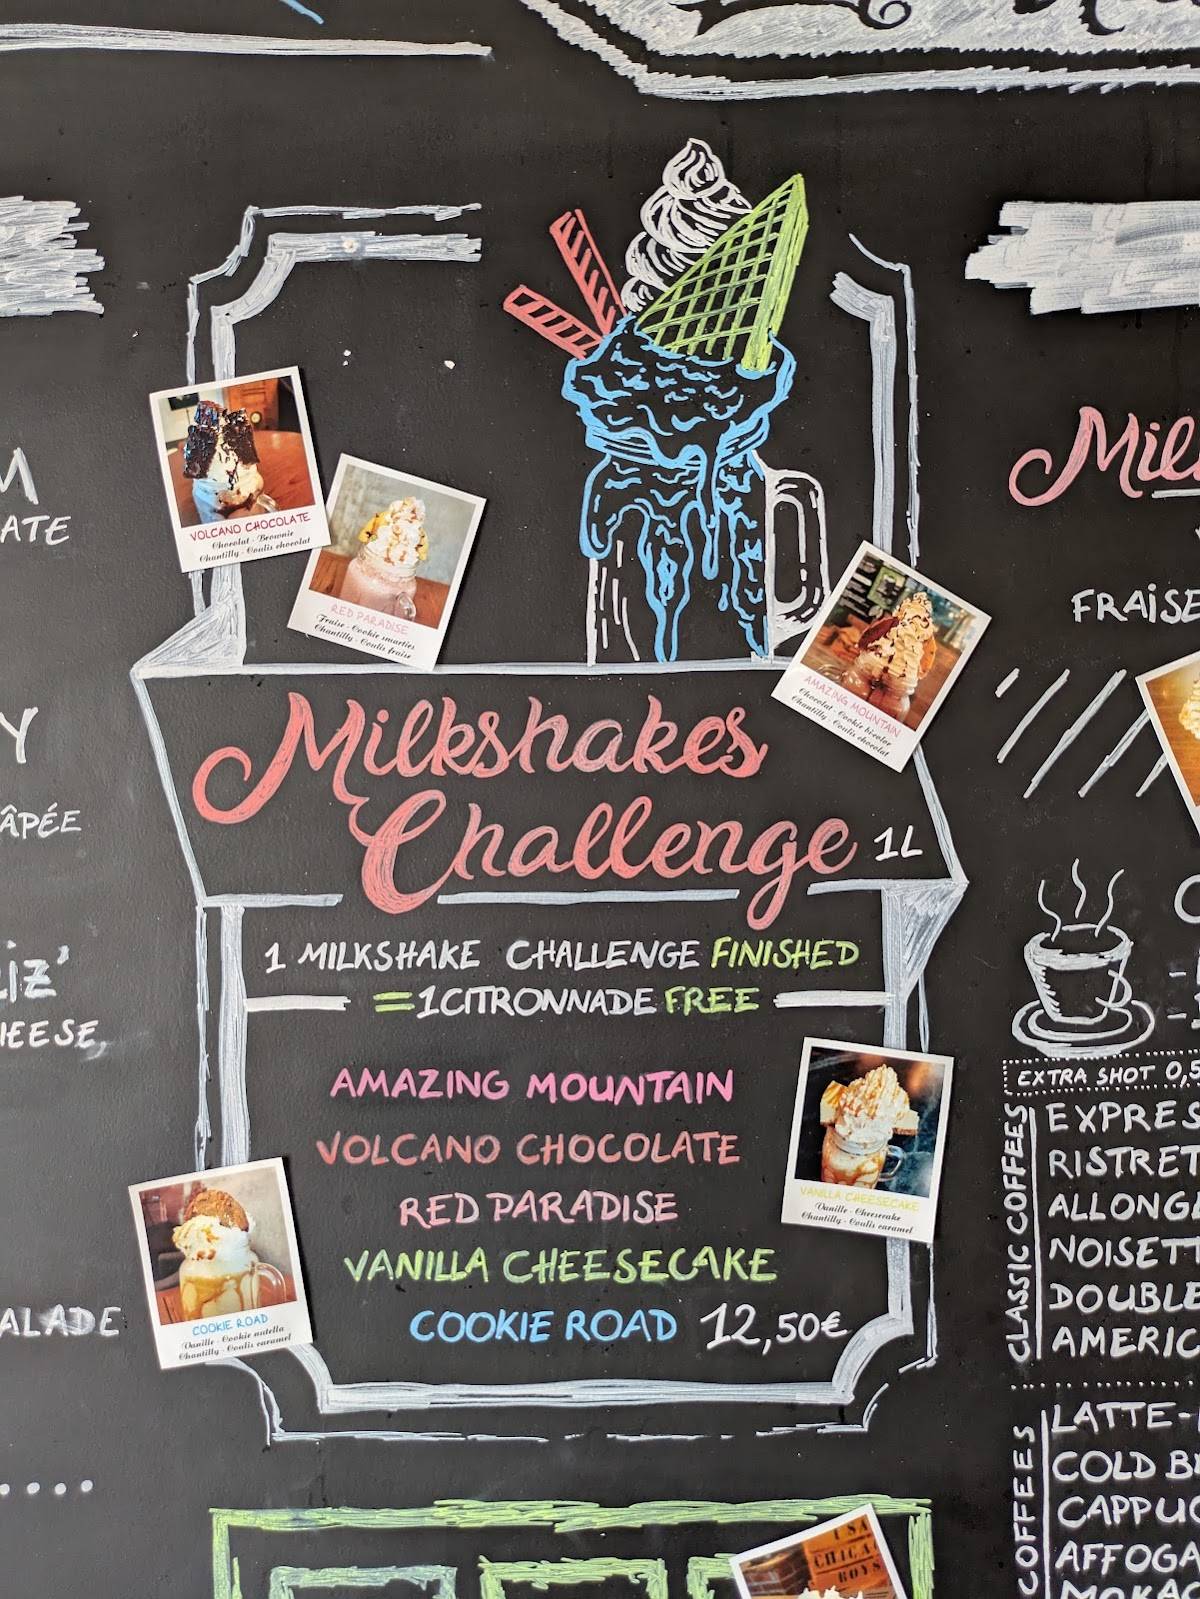 VOLCANO CHOCOLATE
Chocolat - Brownie
Chantilly - Coulis chocolat
RED PARADISE
Fraise - Cookie smarties
Chantilly - Coulis fraise
AMAZING MOUNTAIN
Chocolat - Cookie bi-color
Chantilly - Coulis chocolat
Milkshakes
Challenge 1L
1 MILKSHAKE CHALLENGE FINISHED
=1CITRONNADE FREE
AMAZING MOUNTAIN
VOLCANO CHOCOLATE
RED PARADISE
VANILLA CHEESECAKE
COOKIE ROAD 12,50€
VANILLA CHEESECAKE
Vanille - Cheesecake
Chantilly - Coulis caramel
COOKIE ROAD
Vanille - Cookie nutella
Chantilly - Coulis caramel
M
ATE
Y
ÂPÉE
iZ'
HEESE,
ALADE
.....
Mil
FRAiSE
EXTRA SHOT 0,5
CLASSIC COFFEES
EXPRES
RISTRET
ALLONG
NOISETT
DOUBLE
AMERIC
COFFEES
LATTE-
COLD B
CAPPUC
AFFOGA
MOKAC
USA
CHICA
BOYS